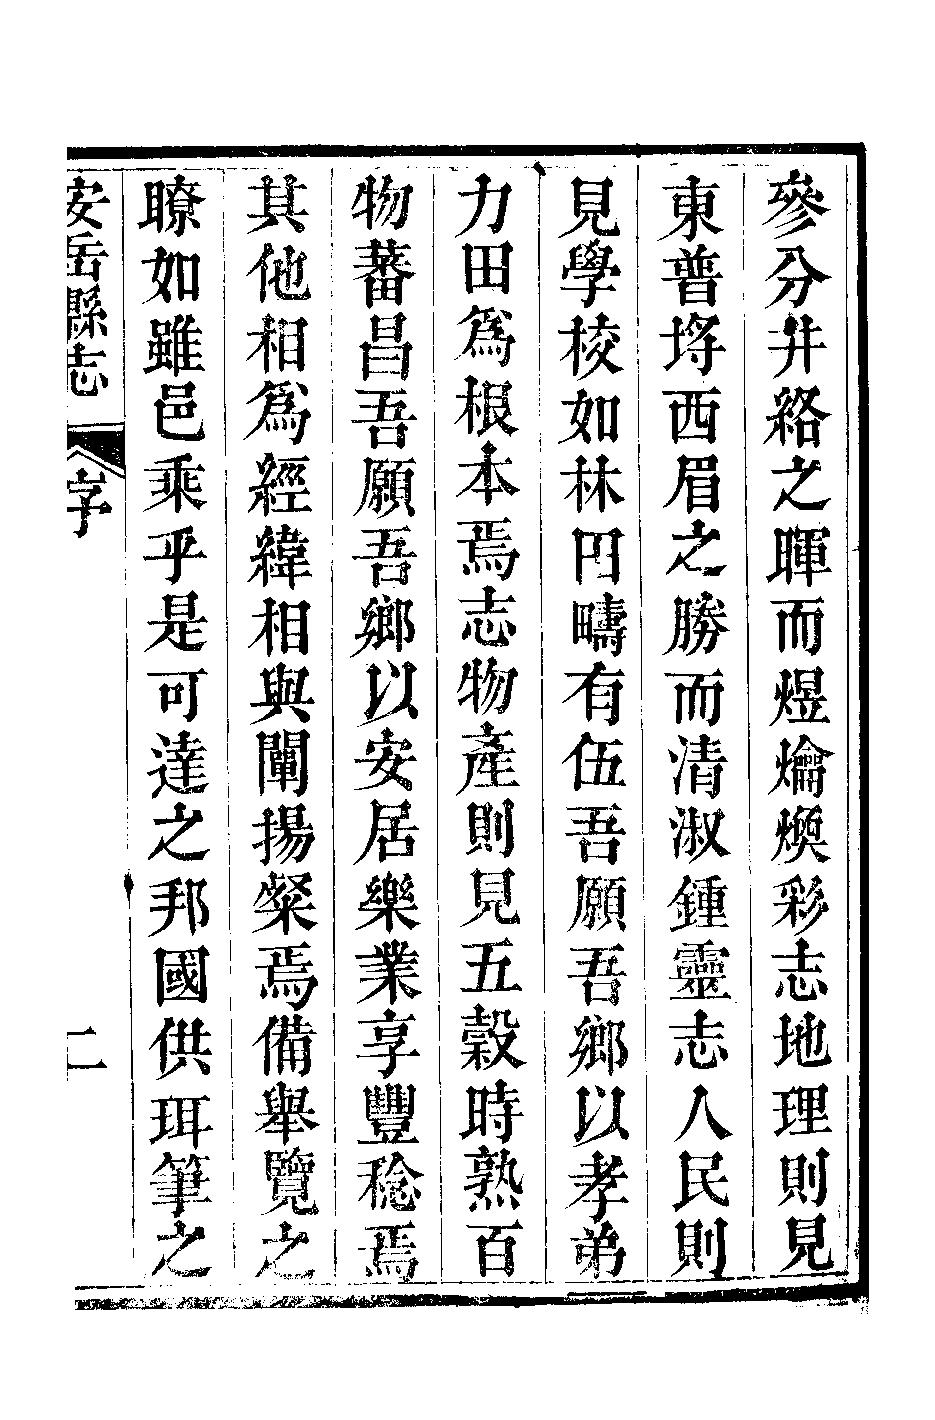 參分井絡之暉而煜爚煥彩志地理則見
東普埓西眉之勝而清淑鍾靈志人民則
見學校如林田疇有伍吾願吾鄉以孝弟
力田爲根本焉志物產則見五穀時熟百
物蕃昌吾願吾鄉以安居樂業享豐稔焉
其他相爲經緯相與闡揚粲焉備舉覽之
瞭如雖邑乘乎是可達之邦國供珥筆之
安岳縣志
序
二